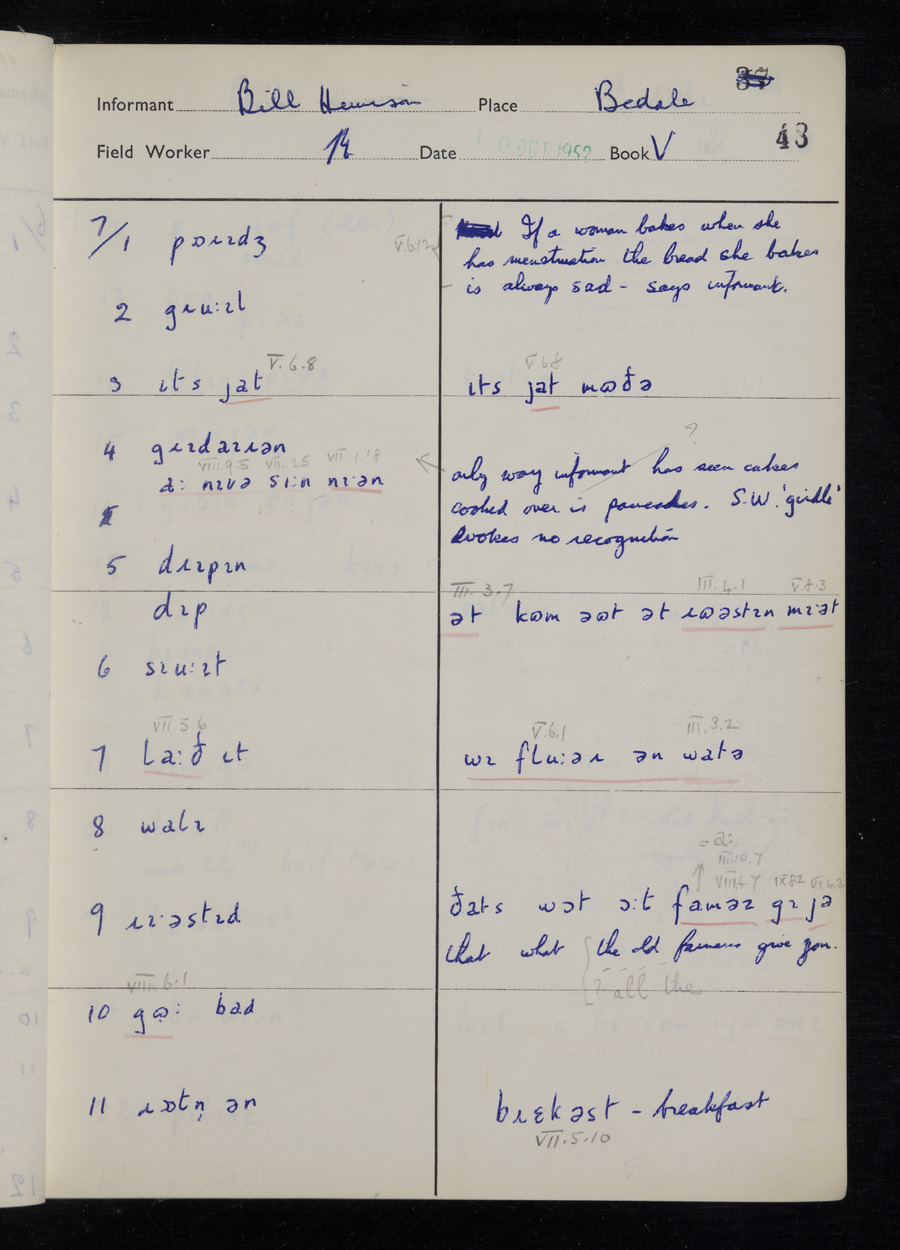 37
Informant Bill Place Bedale
Field Worker Date OCT 1952 Book V 43
7/1 pɒɹɪdʒ
V.6.12
If a woman bakes when she
has menstruation the bread she bakes
is always sad - says informant.
2 gɹu:ɪl
V.6.8
3 ɪts jat
V.6.8
ɪts jat mɷðə
4 gɪɪdaɪɪən
VIII.9.5 VIII.2.5 VII.1.18
a: nɪvə sɪ:n nɪ:ən
?
only way informant has seen cakes
cooked over is pancakes. S.W. 'girdle'
evokes no recognition
5 dɹɪpɪn
dɪp
III.3.7 III.4.1 V.8.3
ət kɷm əɷt ət ɹɷəstɪn mɪ:ət
6 sɪu:ɪt
VII.5.6
7 la:ð ɪt
V.6.1 III.3.2
wɪ flu:əɹ ən watə
8 watɪ
9 ɹɪ:əstɪd
= a:
III.10.7
VIII.4.7 IX.8.2 VI.4.2
ðats wɔt ɔ:t faməz gɪ jə
that what the old farmers give you.
? all the
VIII.6.1
10 gɷ: bad
11 ɹɒtṇ ən
bɹɛkəst - breakfast
VII.5.10